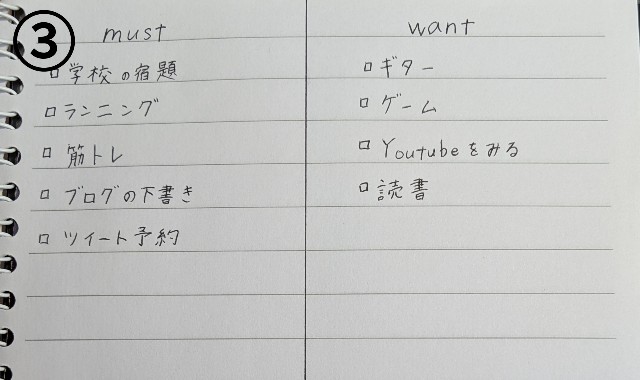 ③
must
□ 学校の宿題
□ ランニング
□ 筋トレ
□ ブログの下書き
□ ツイート予約
want
□ ギター
□ ゲーム
□ Youtubeをみる
□ 読書